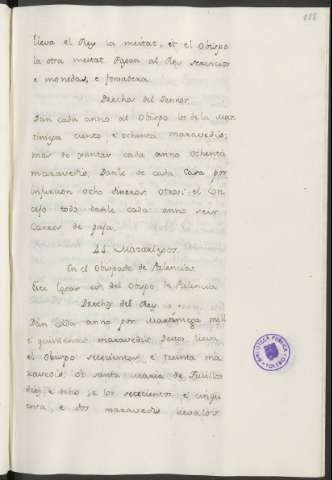 118
lieva el Rey la meitat, et el Obispo
la otra meitat Pagan al Rey servicios
e monedas, e fonsadera.
Derechos del Sennor.
Dan cada anno al Obispo los de la
tiniega ciento e ochenta maravedis;
mas de yantar cada anno ochenta
maravedis. Danle de cada Casa por
infurcion ocho dineros. Otrosi el Con
cejo todo danle cada anno seis
Carros de paja.
En el Obispado de Palencia.
del Obispo de Palencia
Derechos del Rey
Dan Cada anno por Martiniega mill
e quinientos maravedis. Destos lieva
el Obispo setecientos, e treinta ma
ravedis; et santa Maria de Fusillos
diez e ocho; e los setecientos e cinqu
enta, e dos maravedis lievalos
BIBLIOTECA PUBLICA
TOLEDO